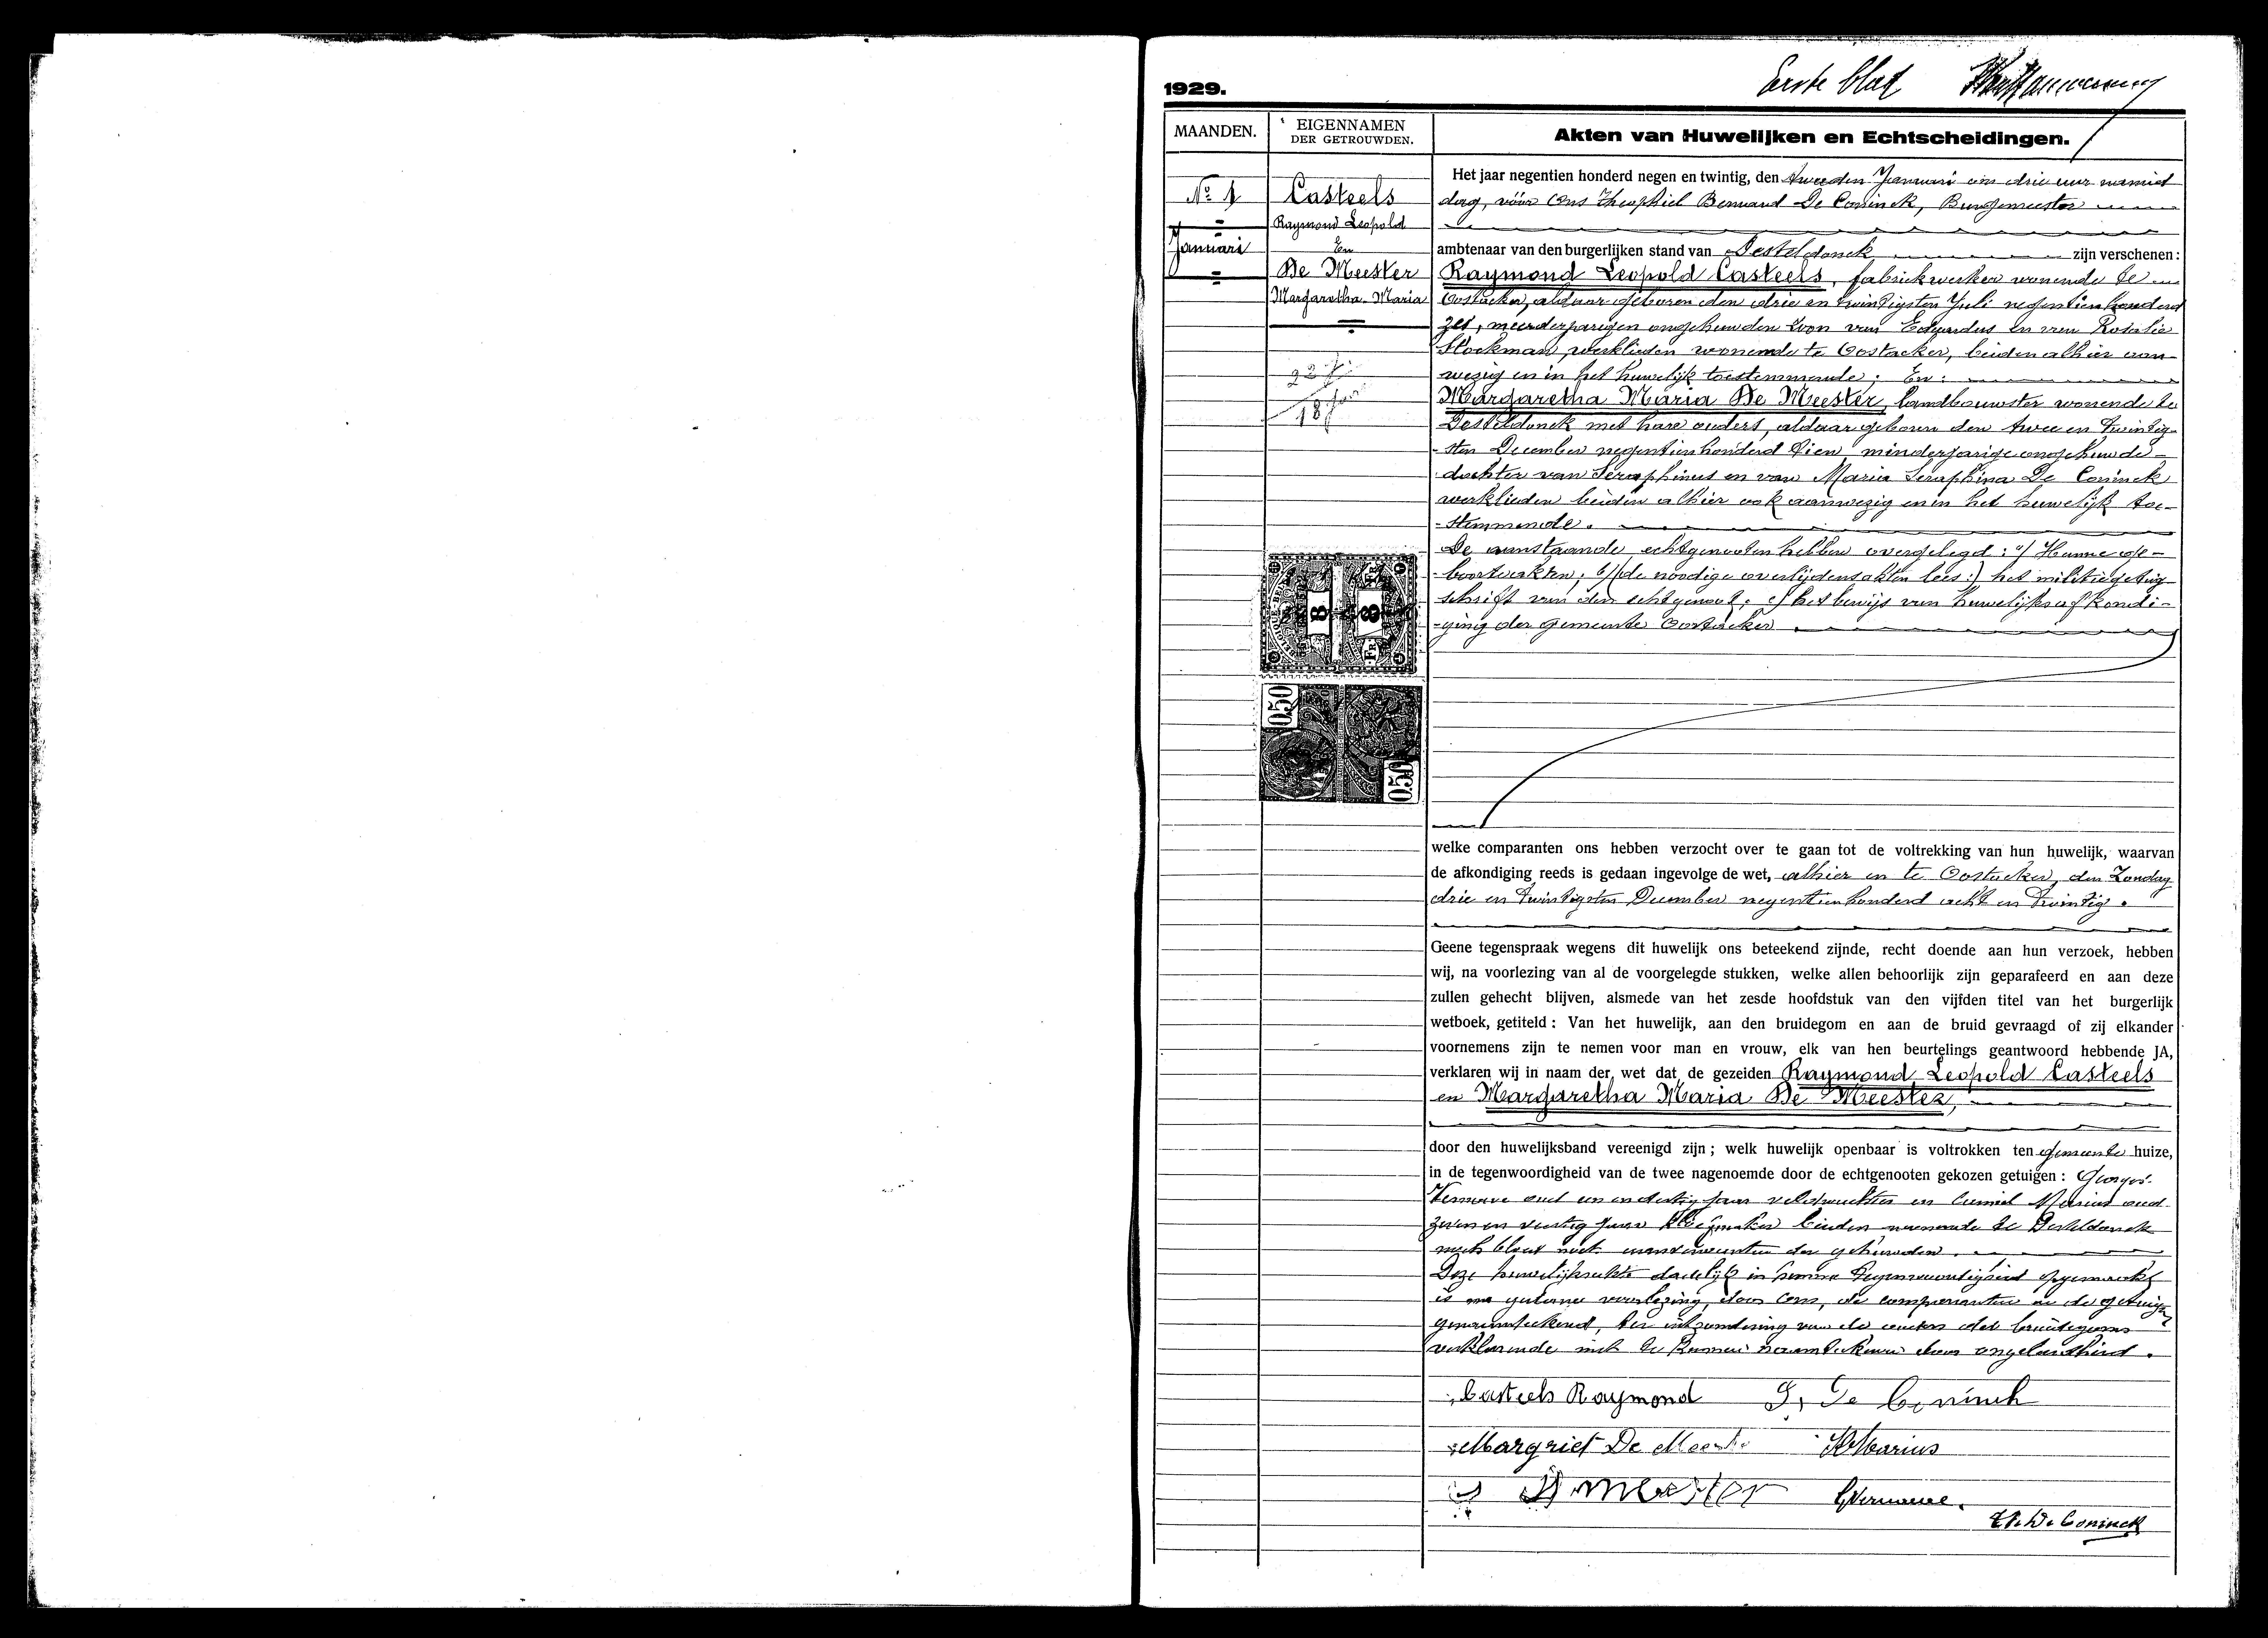 1929.
Eerste blad
MAANDEN.
EIGENNAMEN
DER GETROUWDEN.
Akten van Huwelijken en Echtscheidingen.
No 1
Januari
Casteels
Raymond Leopold
En
De Meester
Margaretha Maria
22 j
18 jaar
Het jaar negentien honderd negen en twintig, den tweeden Januari om drie uur namid
dag, vóór Ons Theophiel Bernard De Coninck, Burgemeester
ambtenaar van den burgerlijken stand van Desteldonck zijn verschenen :
Raymond Leopold Casteels, fabriekwerker wonende te
Oostacker, aldaar geboren den drie en twintigsten Juli negentienhonderd
zes, meerderjarigen ongehuwden zoon van Eduardus en van Rosalie
Stockman, werklieden wonende te Oostacker, beiden alhier aan
wezig en in het huwelijk toestemmende; En :
Margaretha Maria De Meester, landbouwster wonende te
Desteldonck met hare ouders, aldaar geboren den twee en twintig-
sten December negentienhonderd tien, minderjarige ongehuwde
dochter van Seraphinus en van Maria Seraphina De Coninck
werklieden beiden alhier ook aanwezig en in het huwelijk toe-
-stemmende.
De aanstaande echtgenooten hebben overgelegd : a/ Hunne ge-
-boorteakten; b/ (de noodige overlijdensakten lees :) het militiegetuig
schrift van den echtgenoot; c/ het bewijs van huwelijksafkondi-
-ging der gemeente Oostacker.
BELGIQUE-BE
8
8
FR
FR
0.50
0.50
welke comparanten ons hebben verzocht over te gaan tot de voltrekking van hun huwelijk, waarvan
de afkondiging reeds is gedaan ingevolge de wet, alhier en te Oostacker, den Zondag
drie en twintigsten December negentienhonderd acht en twintig.
Geene tegenspraak wegens dit huwelijk ons beteekend zijnde, recht doende aan hun verzoek, hebben
wij, na voorlezing van al de voorgelegde stukken, welke allen behoorlijk zijn geparafeerd en aan deze
zullen gehecht blijven, alsmede van het zesde hoofdstuk van den vijfden titel van het burgerlijk
wetboek, getiteld : Van het huwelijk, aan den bruidegom en aan de bruid gevraagd of zij elkander
voornemens zijn te nemen voor man en vrouw, elk van hen beurtelings geantwoord hebbende JA,
verklaren wij in naam der wet dat de gezeiden Raymond Leopold Casteels
en Margaretha Maria De Meester,
door den huwelijksband vereenigd zijn ; welk huwelijk openbaar is voltrokken ten gemeente huize,
in de tegenwoordigheid van de twee nagenoemde door de echtgenooten gekozen getuigen : Georges
oud een en dertig jaar veldwachter en Camiel Marius oud
zeven en veertig jaar beiden wonende te Desteldonck
noch bloed noch aanverwanten der gehuwden.
Deze huwelijksakte dadelijk in hunne tegenwoordigheid opgemaakt
is na gedane voorlezing, door Ons, de comparanten en de getuigen
genaamteekend, ter uitzondering van de ouders des bruidegoms
verklarende niet te kunnen naamteekenen door ongeleerdheid.
Casteels Raymond
S, De Coninck
Margriet De Meester
Marius
Meester
Th. De Coninck